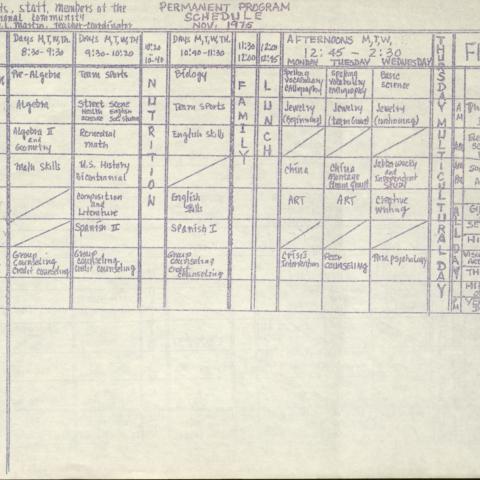 staff, members of the
PERMANENT PROGRAM
community
SCHEDULE
NOV. 1975
Days M, T, W, Th.
8:30 - 9:30
Days M, T, W, TH
9:30 - 10:20
10:20
10:40
Days M, T, W, TH.
10:40 - 11:30
11:30
12:00
12:00
12:45
AFTERNOONS M, T, W,
12:45 - 2:30
MONDAY TUESDAY WEDNESDAY
THURSDAY MULTICULTURAL DAY
NUTRITION
FAMILY
LUNCH
Pre-Algebra
Team Sports
Biology
Spelling
Vocabulary
Calligraphy
Spelling
Vocabulary
Calligraphy
Basic
Science
Algebra
Street Scene
Health English
Science
Team Sports
Jewelry
(beginning)
Jewelry
Jewelry
(continuing)
Algebra II
and
Geometry
Remedial
Math
English Skills
Math Skills
U.S. History
Bicentennial
China
China
Montage
and
Independent
Study
Composition
and
Literature
English
Skills
ART
ART
Creative
Writing
Spanish II
Spanish I
Group
Counseling
Credit Counseling
Group
Counseling
Credit Counseling
Group
Counseling
Credit
Counseling
Crisis
Intervention
Peer
Counseling
Psychology